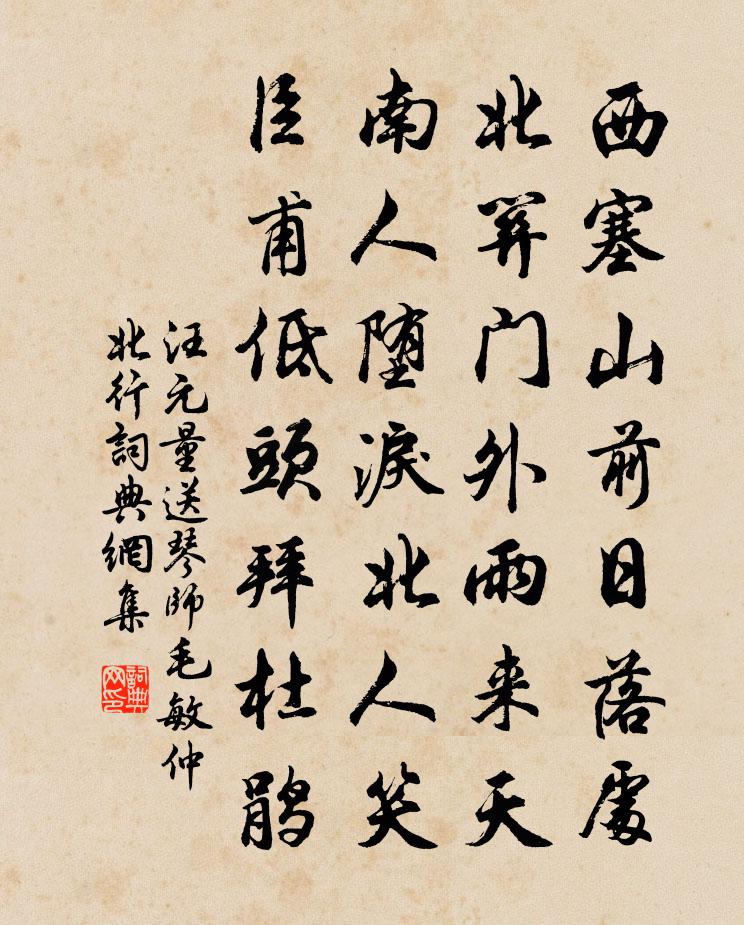 西塞山前日落處
北關門外雨来天
南人堕淚北人笑
臣甫低頭拜杜鹃
汪元量送琴師毛敏仲
北行詞典網集
詞典网印